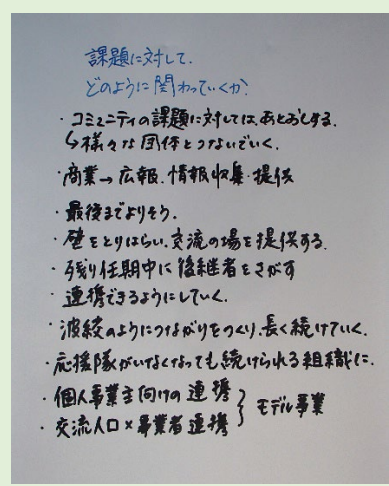 課題に対して、
どのように関わっていくか?
・コミュニティの課題に対しては、あとおしする。
↳様々な団体とつないでいく。
・商業→広報、情報収集・提供
・最後までよりそう。
・壁をとりはらい、交流の場を提供する。
・残り任期中に後継者をさがす
・連携できるようにしていく。
・波紋のようにつながりをつくり、長く続けていく。
・応援隊がいなくなっても続けられる組織に。
・個人事業主向けの連携
・交流人口×事業者連携 } モデル事業